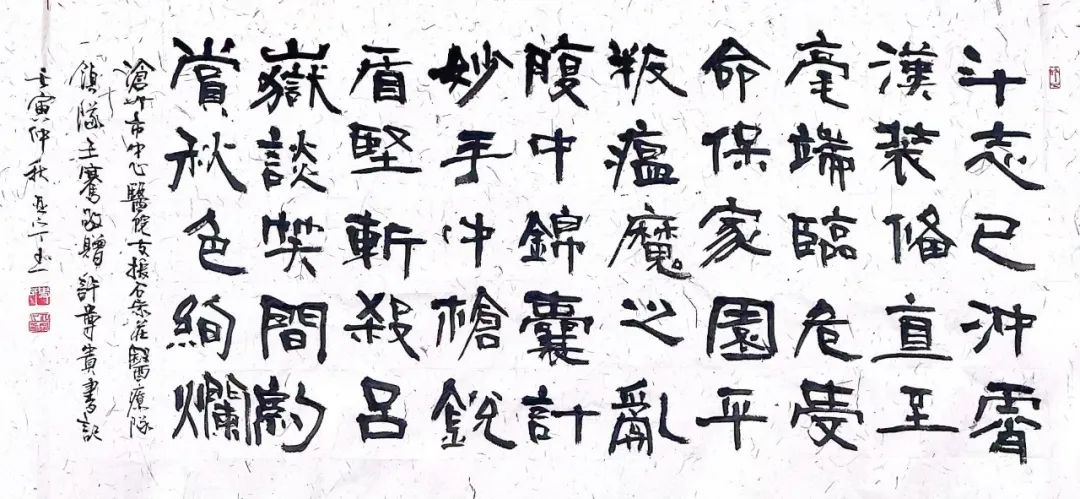 斗志已沖霄
漢裝備直至
毫端臨危受
命保家園平
叛瘟魔之亂
腹中錦囊計
妙手中槍銳
盾堅斬殺呂
嶽談笑間
賞秋色絢爛
滄州市中心醫院支援莊醫療隊
隊王騫敬贈許貴書記
壬寅仲秋